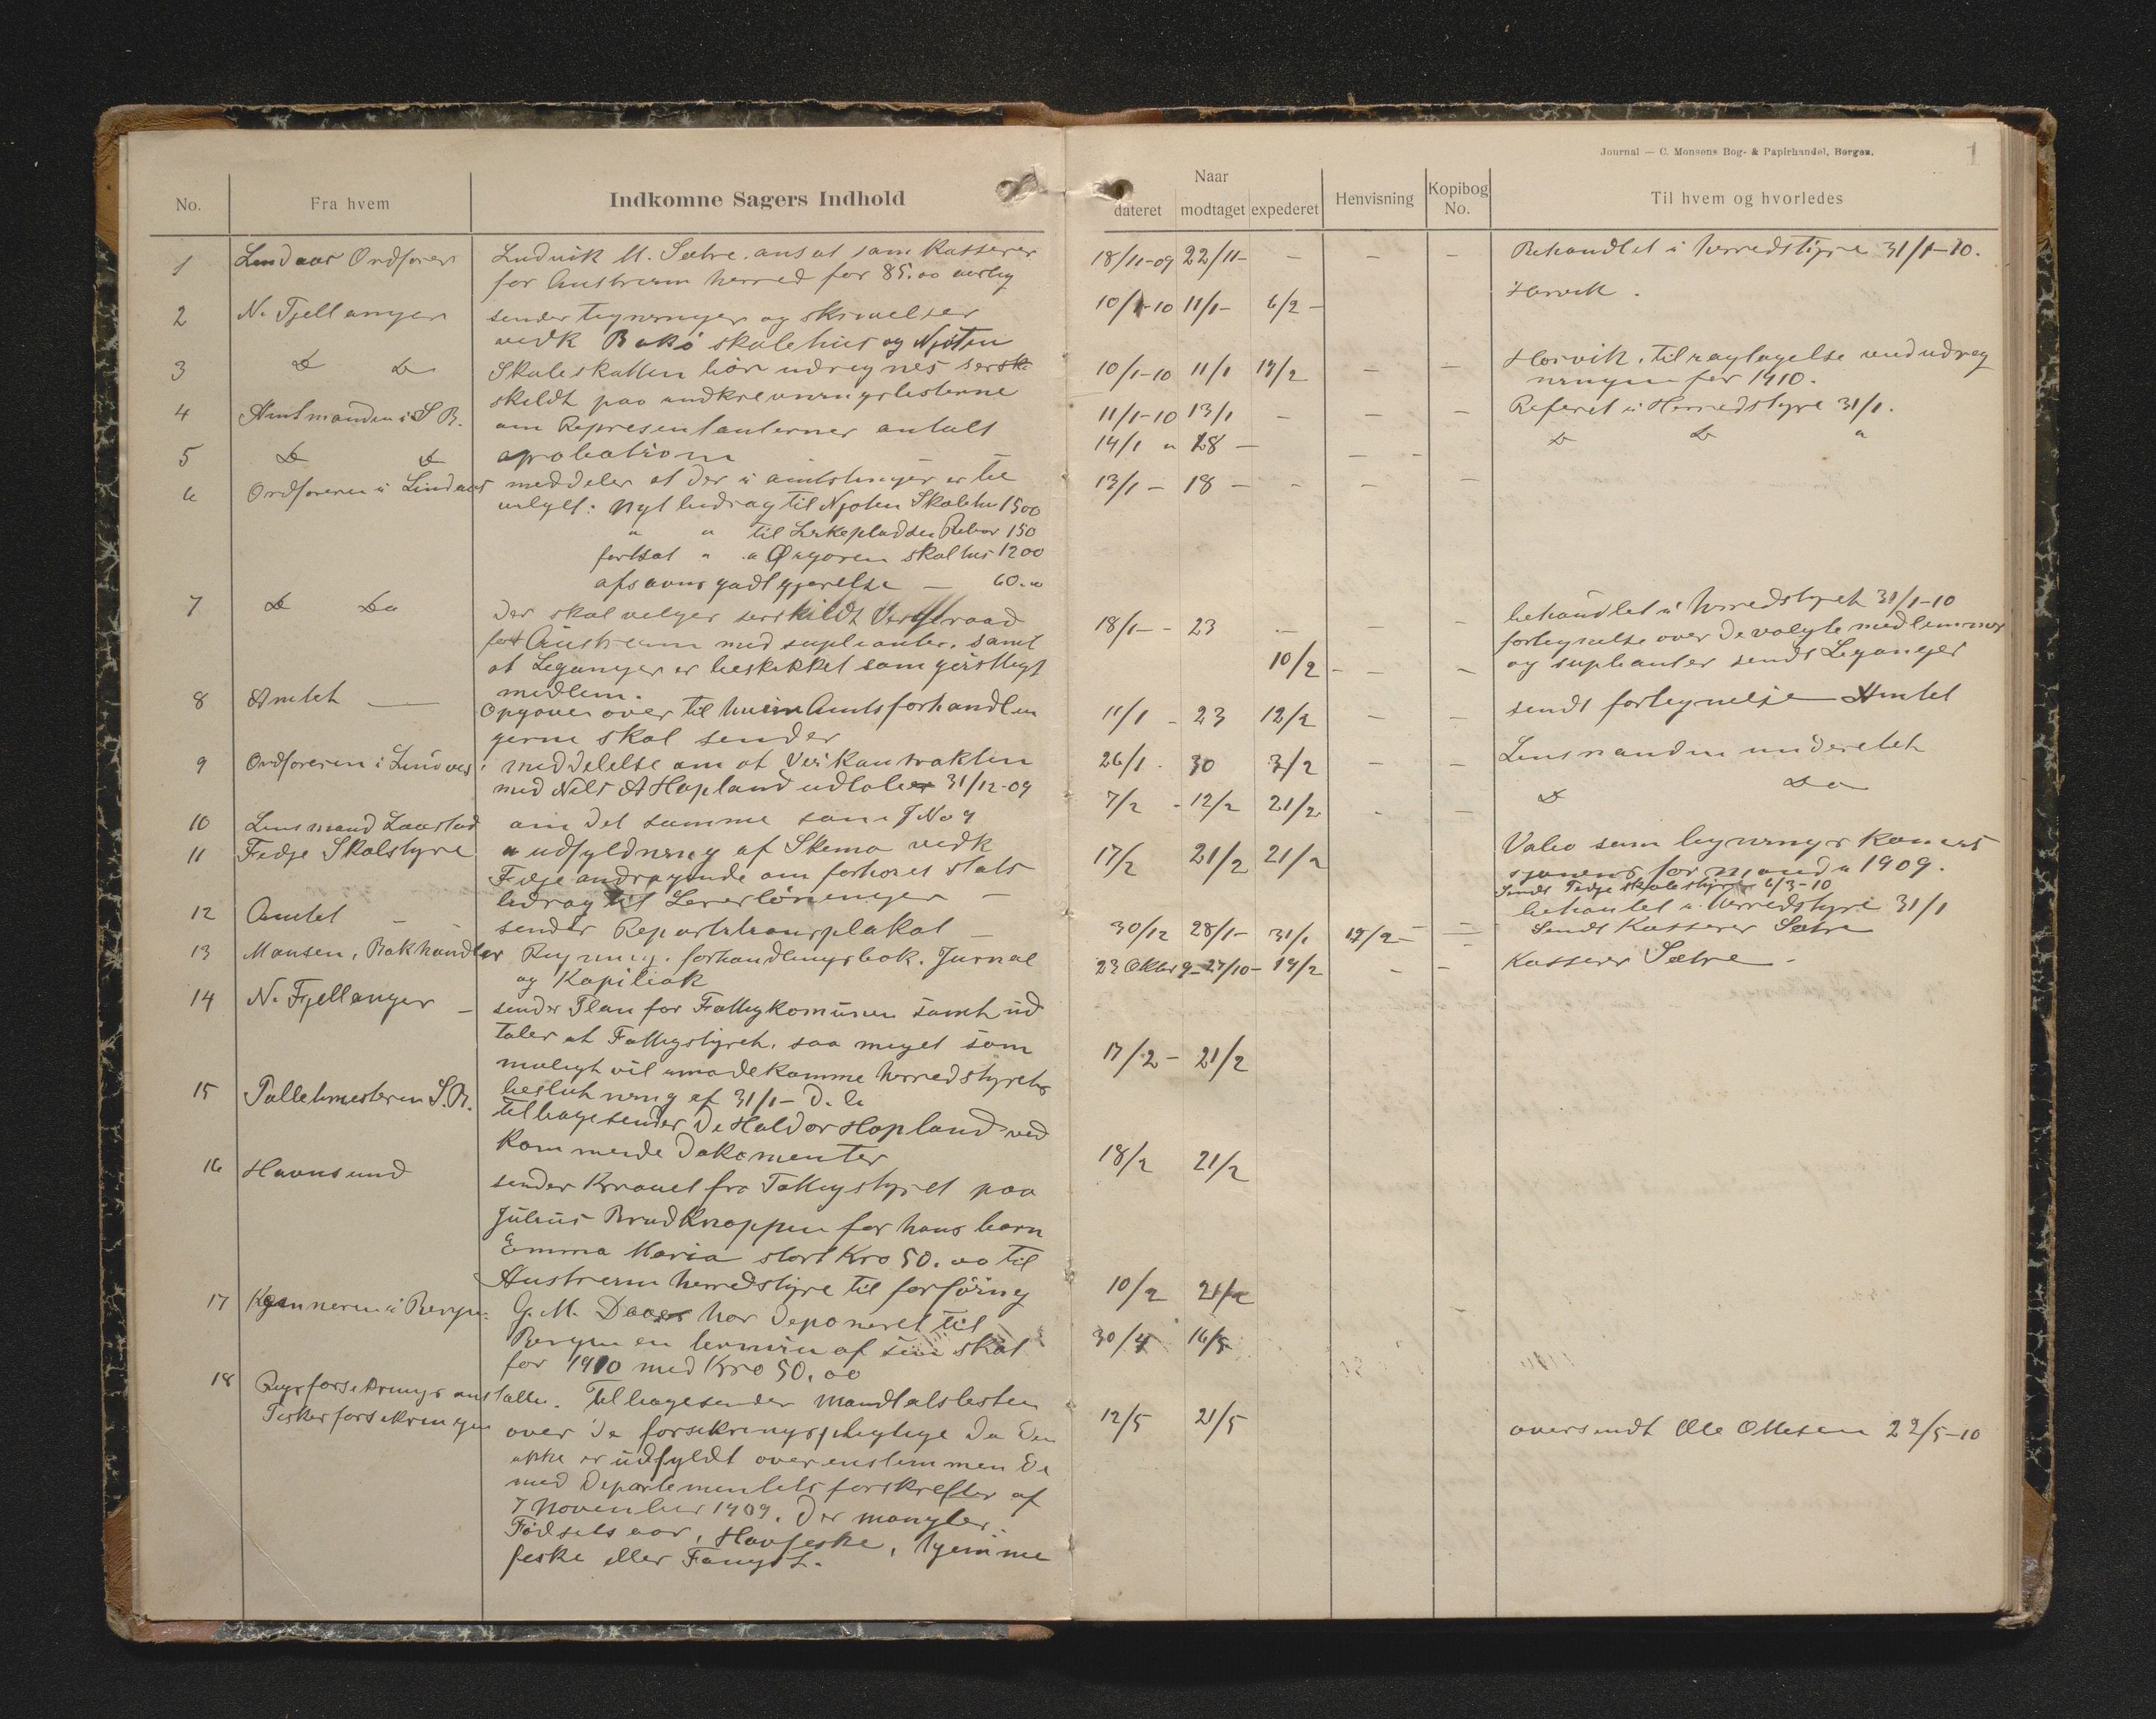 Journal — C. Monsens Bog- & Papirhandel, Bergen.
1
No. Fra hvem Indkomne Sagers Indhold Naar dateret modtaget expederet Henvisning Kopibog No. Til hvem og hvorledes
1 Lindaas Ordfører Ludvik M. Sætre ansat som Kasserer 18/11-09 22/11- – – – Behandlet i herredstyre 31/1-10.
for Austreim herred for 85.00 aarlig
2 N. Fjellanger sender tegninger og skrivelser 10/1-10 11/1- 6/2 –
vedk Bakö skolehus og Njöten
3 Do Do Skoleskatten bör udregnes sersk 10/1-10 11/1 19/2 – – Horvik, til
skildt paa indkrevningslisterne for 1910.
4 Amtmanden i S B. om Representanternes antall 11/1-10 13/1 – – – Referet i Herredstyre 31/1.
5 Do Do aprobation 14/1 " 28 – – – Do Do "
6 Ordføreren i Lindaas meddeler at der i amtstinget er til 13/1 – 18 – – – –
velgt: Nyt bidrag til Njoten Skolehu 1500
" " til Lekepladsen Rebor 150
fortsat " " skolhus 1200
afsavns godtgjørelse – 60.00
7 Do Do Der skal velges serskildt Vergeraad 18/1 – – 23 – – – behandlet i herredstyret 31/1-10
for Austreim med suplianter. samt fortegnelse over de valgte medlemmer
at Leganger er beskikket som geistligt 10/2 – – – og suplianter sendt Leganger
medlem.
8 Amtet — Opgaver over til hvem Amtsforhandlin 11/1 – 23 12/2 – – sendt fortegnelse Amtet
gerne skal sender
9 Ordføreren i Lindaas meddelelse om at Veikontrakten 26/1. 30 3/2 – – Lensmanden underetet
med Nils A Hopland udlober 31/12-09
10 Lensmand Laastad om det samme som J No 9 7/2 - 12/2 21/2 - – Do Do
11 Fedje Skolstyre " udfyldning af Skema vedk 17/2 21/2 21/2
Fedje andragende om forhoiet stats for 1909.
bidrag til Lererlöninger – Sendt Fedje skolestyre 6/3-10
12 Amtet – sender Repartitionsplakat – 30/12 28/1- 31/1 19/2 – – behanlet i Herredstyre 31/1
Sendt Kasserer Sætre
13 Monsen, Bokhandler Regning. forhandlingsbok. Jurnal 23 Oktbr 9 - 27/10 – 19/2 – – Kasserer Sætre –
og Kopibok
14 N. Fjellanger – sender Plan for Fattigkomunen samt ud
taler at Fattigstyret, saa meget som 17/2 – 21/2
muligt vil imødekomme herredstyrets
beslutning af 31/1 – D. A.
15 Politimesteren S.B. tilbagesender De Haldor Hopland ved
kommende dokomenter 18/2 21/2
16 Havnsund sender Kravet fra Fattigstyret paa
Julius Bradknappen for hans barn
Emma Maria stort Kro 50.00 til
Austreim herredstyre til forföing 10/2 21/2
17 Kemneren i Bergen. G. M. har deponeret til
Bergen en termin af sin skat 30/4 16/5
for 1910 med Kro 50.00
18 Rigsforsikrings anstalten. Tilbagesender Mandtalslisten 12/5 21/5 oversendt Ole Ottesen 22/5-10
Fiskerforsikringen over de forsikringspligtige da den
ikke er udfyldt overenstemmen de
med Departementets forskrifter af
7 November 1909. der mangler.
Födsels aar, Havfiske, hjemme
fiske eller Fangst.